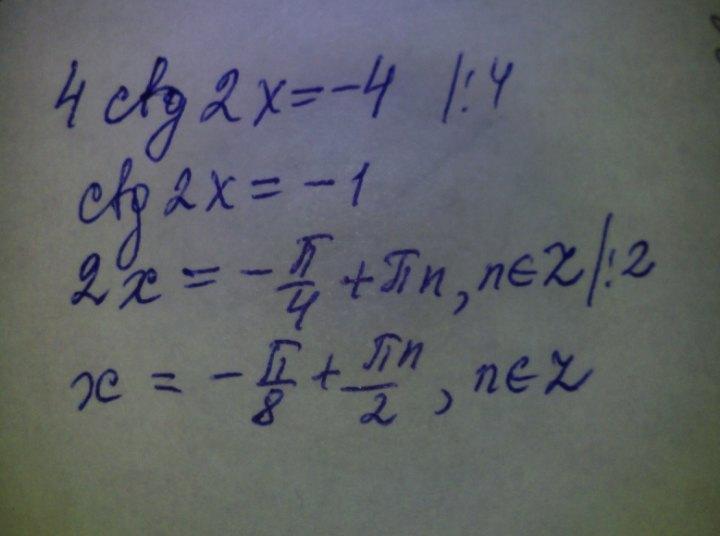 4 ctg 2x = -4 |:4
ctg 2x = -1
2x = -π/4 + πn, n∈Z |:2
x = -π/8 + πn/2, n∈Z